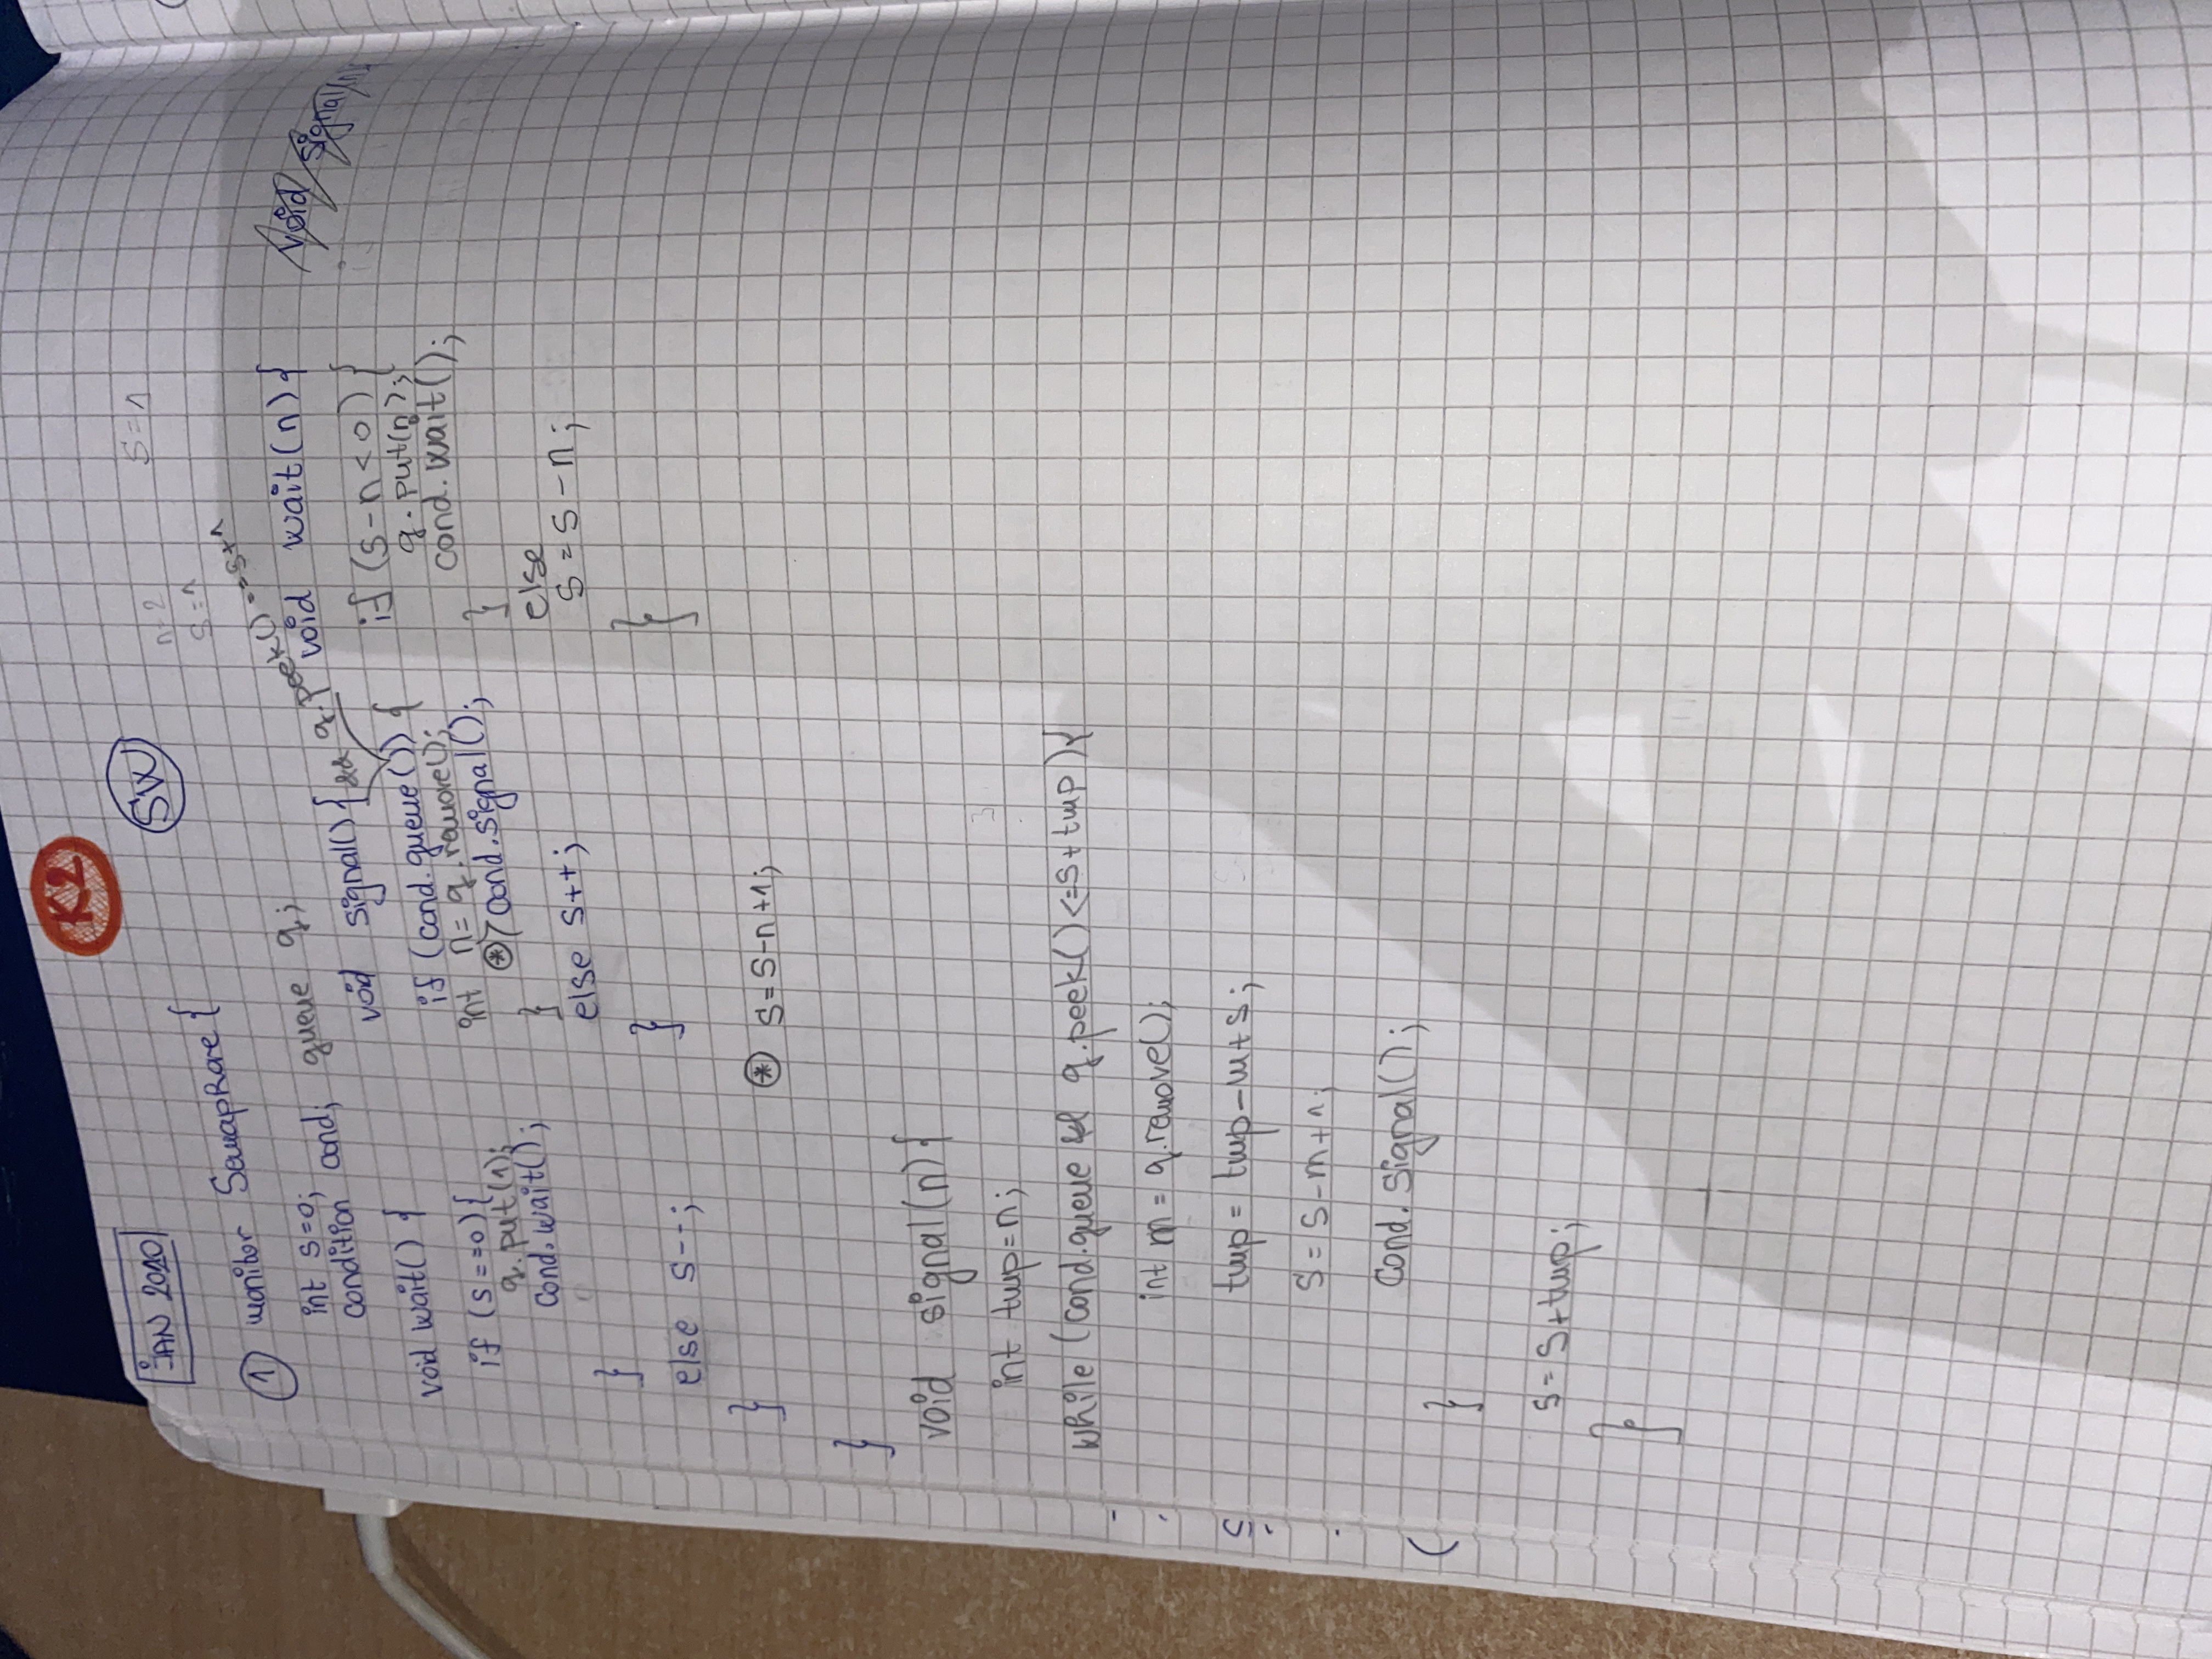 K2
JAN 2020
SW
n=2
S=1
S=1
① monitor Semaphore {
int s=0;
condition cond; queue q;
void wait() {
if (s==0){
q.put(1);
cond.wait();
}
else s--;
}
}
void signal() {
&& q.peek()==s+1
if (cond.queue()) {
int n= q.remove();
⊛ cond.signal();
}
else s++;
}
⊛ s=s-n+1;
void wait(n) {
if (s-n<0) {
q.put(n);
cond.wait();
}
else
s=s-n;
}
void signal(n)
void signal(n){
int tmp=n;
while (cond.queue && q.peek()<=s+tmp){
int m = q.remove();
tmp = tmp-m+s;
s=s-m+1;
cond.signal();
}
s=s+tmp;
}